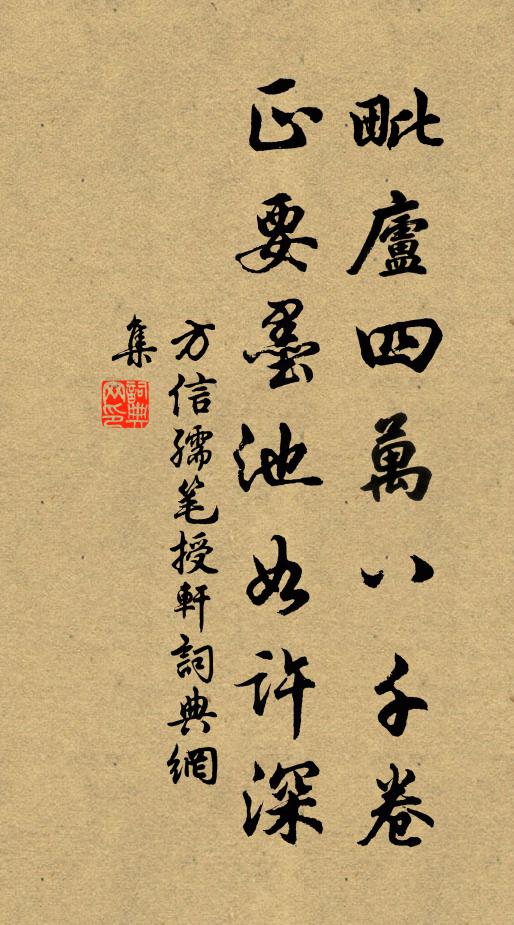 毗廬四萬八千卷
正要墨池如許深
方信孺笔授軒詞典網
集
詞典網印